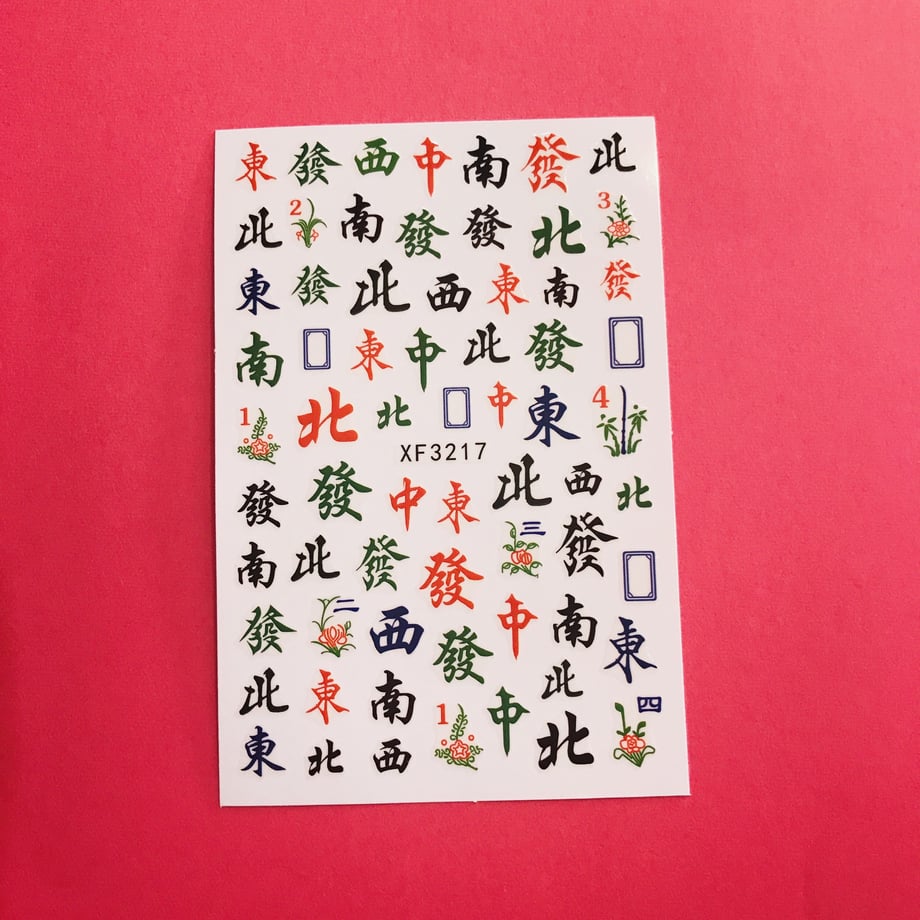 東 發 西 中 南 發 北
北 2 南 發 發 北 3
東 發 北 西 東 南 發
南 東 中 北 發
1 北 北 中 東 4
XF3217
發 發 中 東 北 西 北
南 北 發 發 三 發
發 二 西 發 中 南 東
北 東 南 1 中 北 四
東 北 西 北